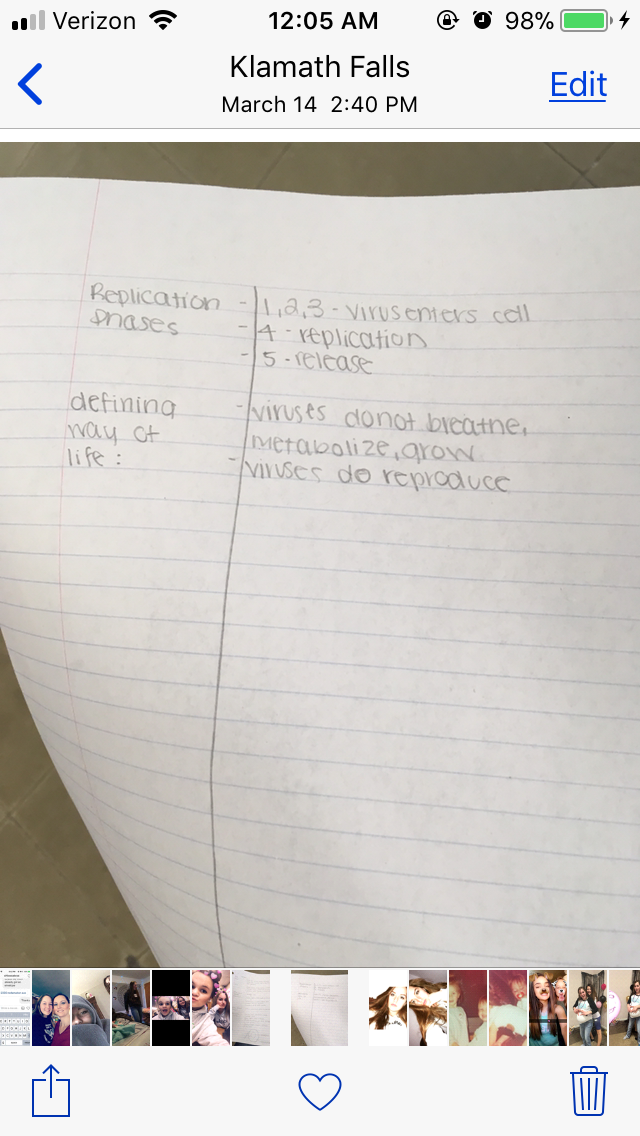 Verizon 12:05 AM 98%
Klamath Falls
March 14 2:40 PM
Edit
Replication - 1,2,3 - virus enters cell
phases - 4 - replication
- 5 - release
defining - viruses do not breathe,
way of metabolize, grow
life : - viruses do reproduce